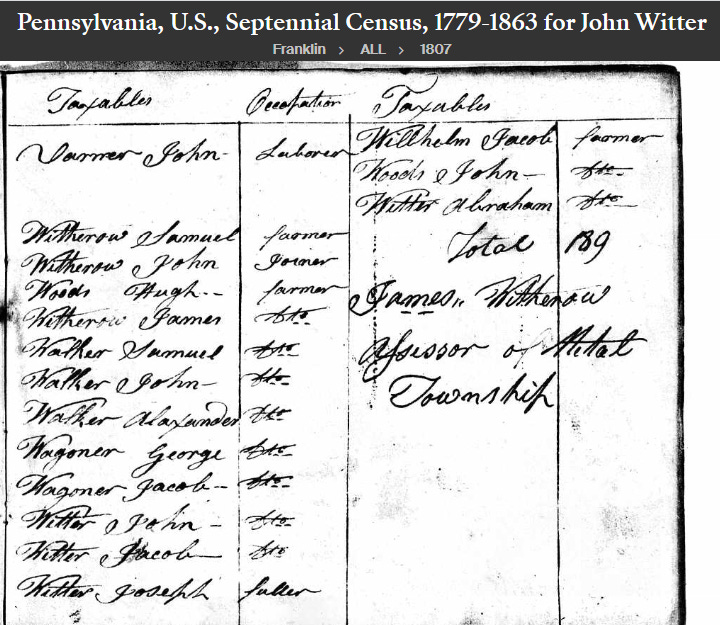 Pennsylvania, U.S., Septennial Census, 1779-1863 for John Witter
Franklin > ALL > 1807
Taxables Occupation
Varner John - Laborer
Witherow Samuel farmer
Witherow John Joiner
Woods Hugh -- farmer
Witherow James dto
Walker Samuel dto
Walker John - dto
Walker Alaxander dto
Wagoner George dto
Wagoner Jacob -- dto
Witter John - dto
Witter Jacob - dto
Witter Joseph fuller
Taxables
Willhelm Jacob farmer
Woods John - dto
Witter Abraham dto
Total 189
James Witherow
Assessor of Metal
Township